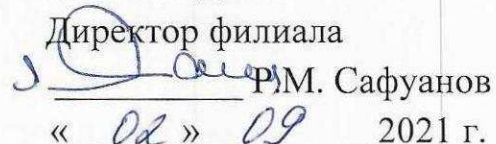 Директор филиала
Р.М. Сафуанов
« 02 » 09 2021 г.